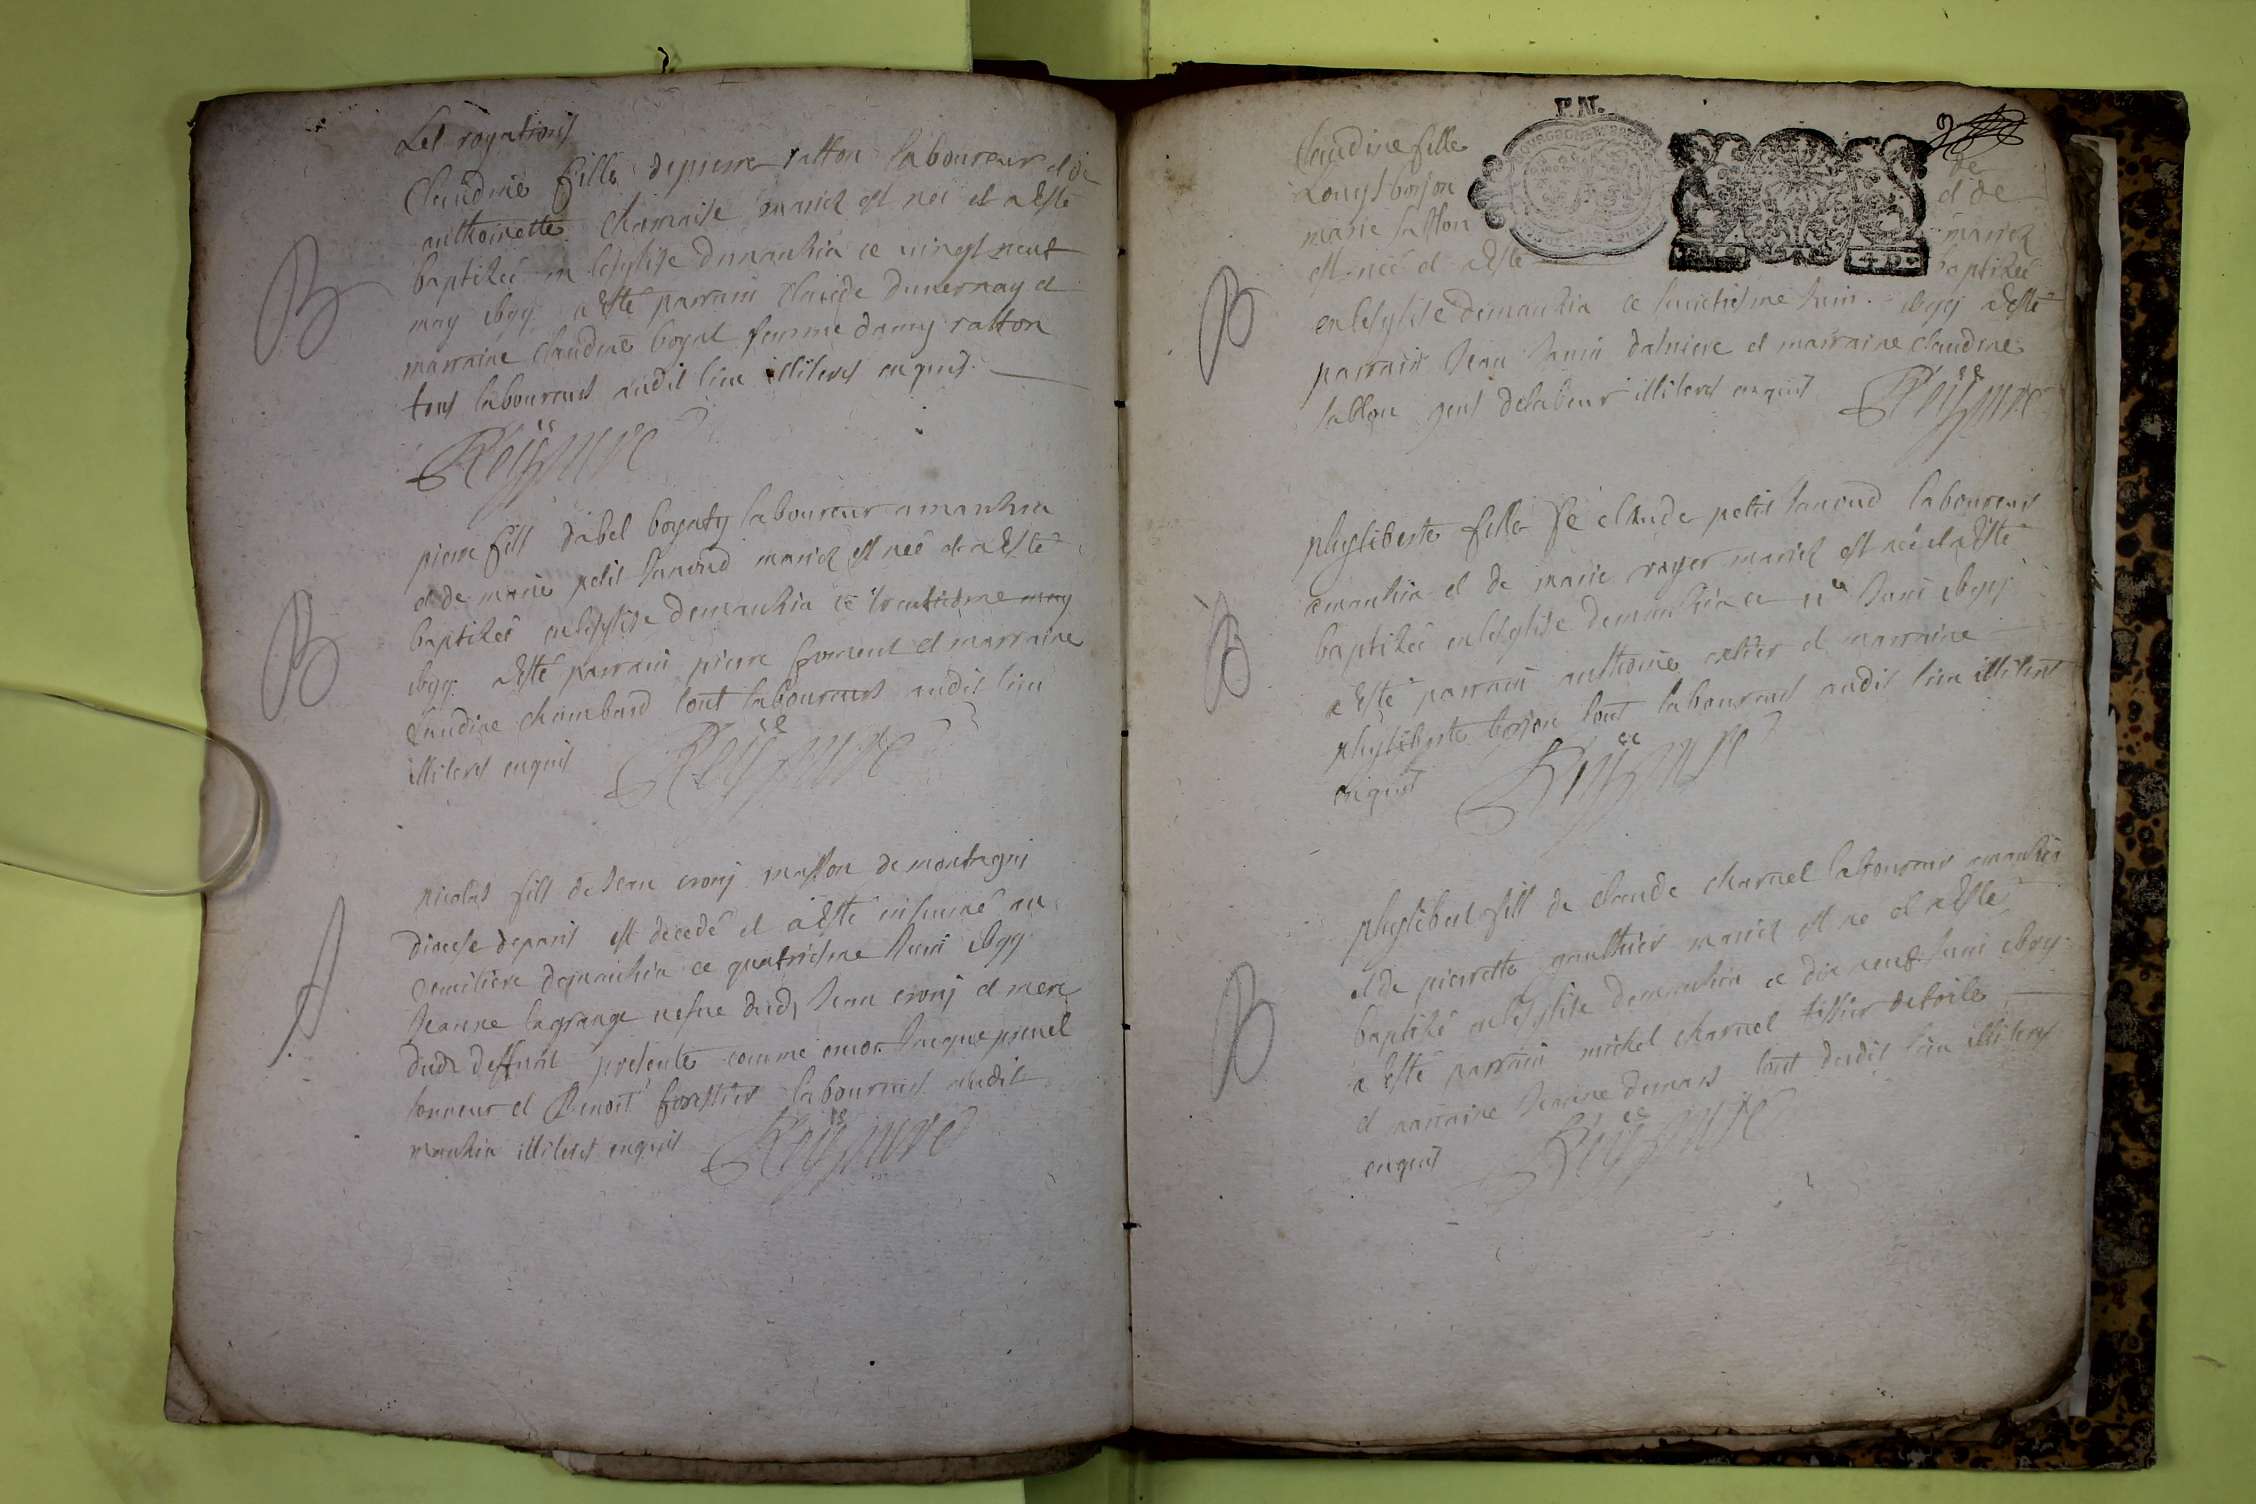 Les rogations
Claudine fille de pierre ratton laboureur et de
anthoinette Chamaise mariez est neé et a Esté
baptizeé en lesglise demanhia ce vingt neuf
may
a Esté parrain Claude duvernay et
marraine Claudine boyat femme damy ratton
tous laboureurs audit lieu illiteres enquis
B
pierre fils dabel boyaty laboureur a manhia
et de marie petit Januud mariez est neé et a Esté
baptizeé en lesglise demanhia ce trentiesme may
a Esté parrain pierre froment et marraine
Claudine Chambard tout laboureurs audit lieu
illiteres enquis
B
nicolas fils de Jean crony masson de montagni
diocese deparis est decedé et a Esté inhumé au
cemitiere demanhia ce quatriesme Juin
Jeanne lagrange vefue dud, Jean crony et mere
dud, deffunt presente comme encor Jacque prevel
sonneur et Benoit forestier laboureurs audit
manhia illiteres enquis
P.N.
Claudine fille de
Louys borjon et de
marie sallon mariez
est neé et a Esté baptizeé
en lesglise demanhia ce huictiesme Juin a Esté
parrain Jean Janin dalniere et marraine Claudine
sallon gens delabeur illiteres enquis
B
phyliberte fille de claude petit Januud laboureur
amanhia et de marie royer mariez est neé et a Esté
baptizeé en lesglise demanhia ce 11e Juin
a Esté parrain anthoine et marraine
phyliberte borjon tout laboureurs audit lieu illiteres
enquis
B
phylibert fils de Claude charnel laboureur amanhia
et de pierrette gaulthier mariez est né et a Esté
baptizé en lesglise demanhia ce dix neuf Juin
a Esté parrain michel charnel tissier detoile
et marraine Jeanne demars tout dudit lieu illiteres
enquis
B